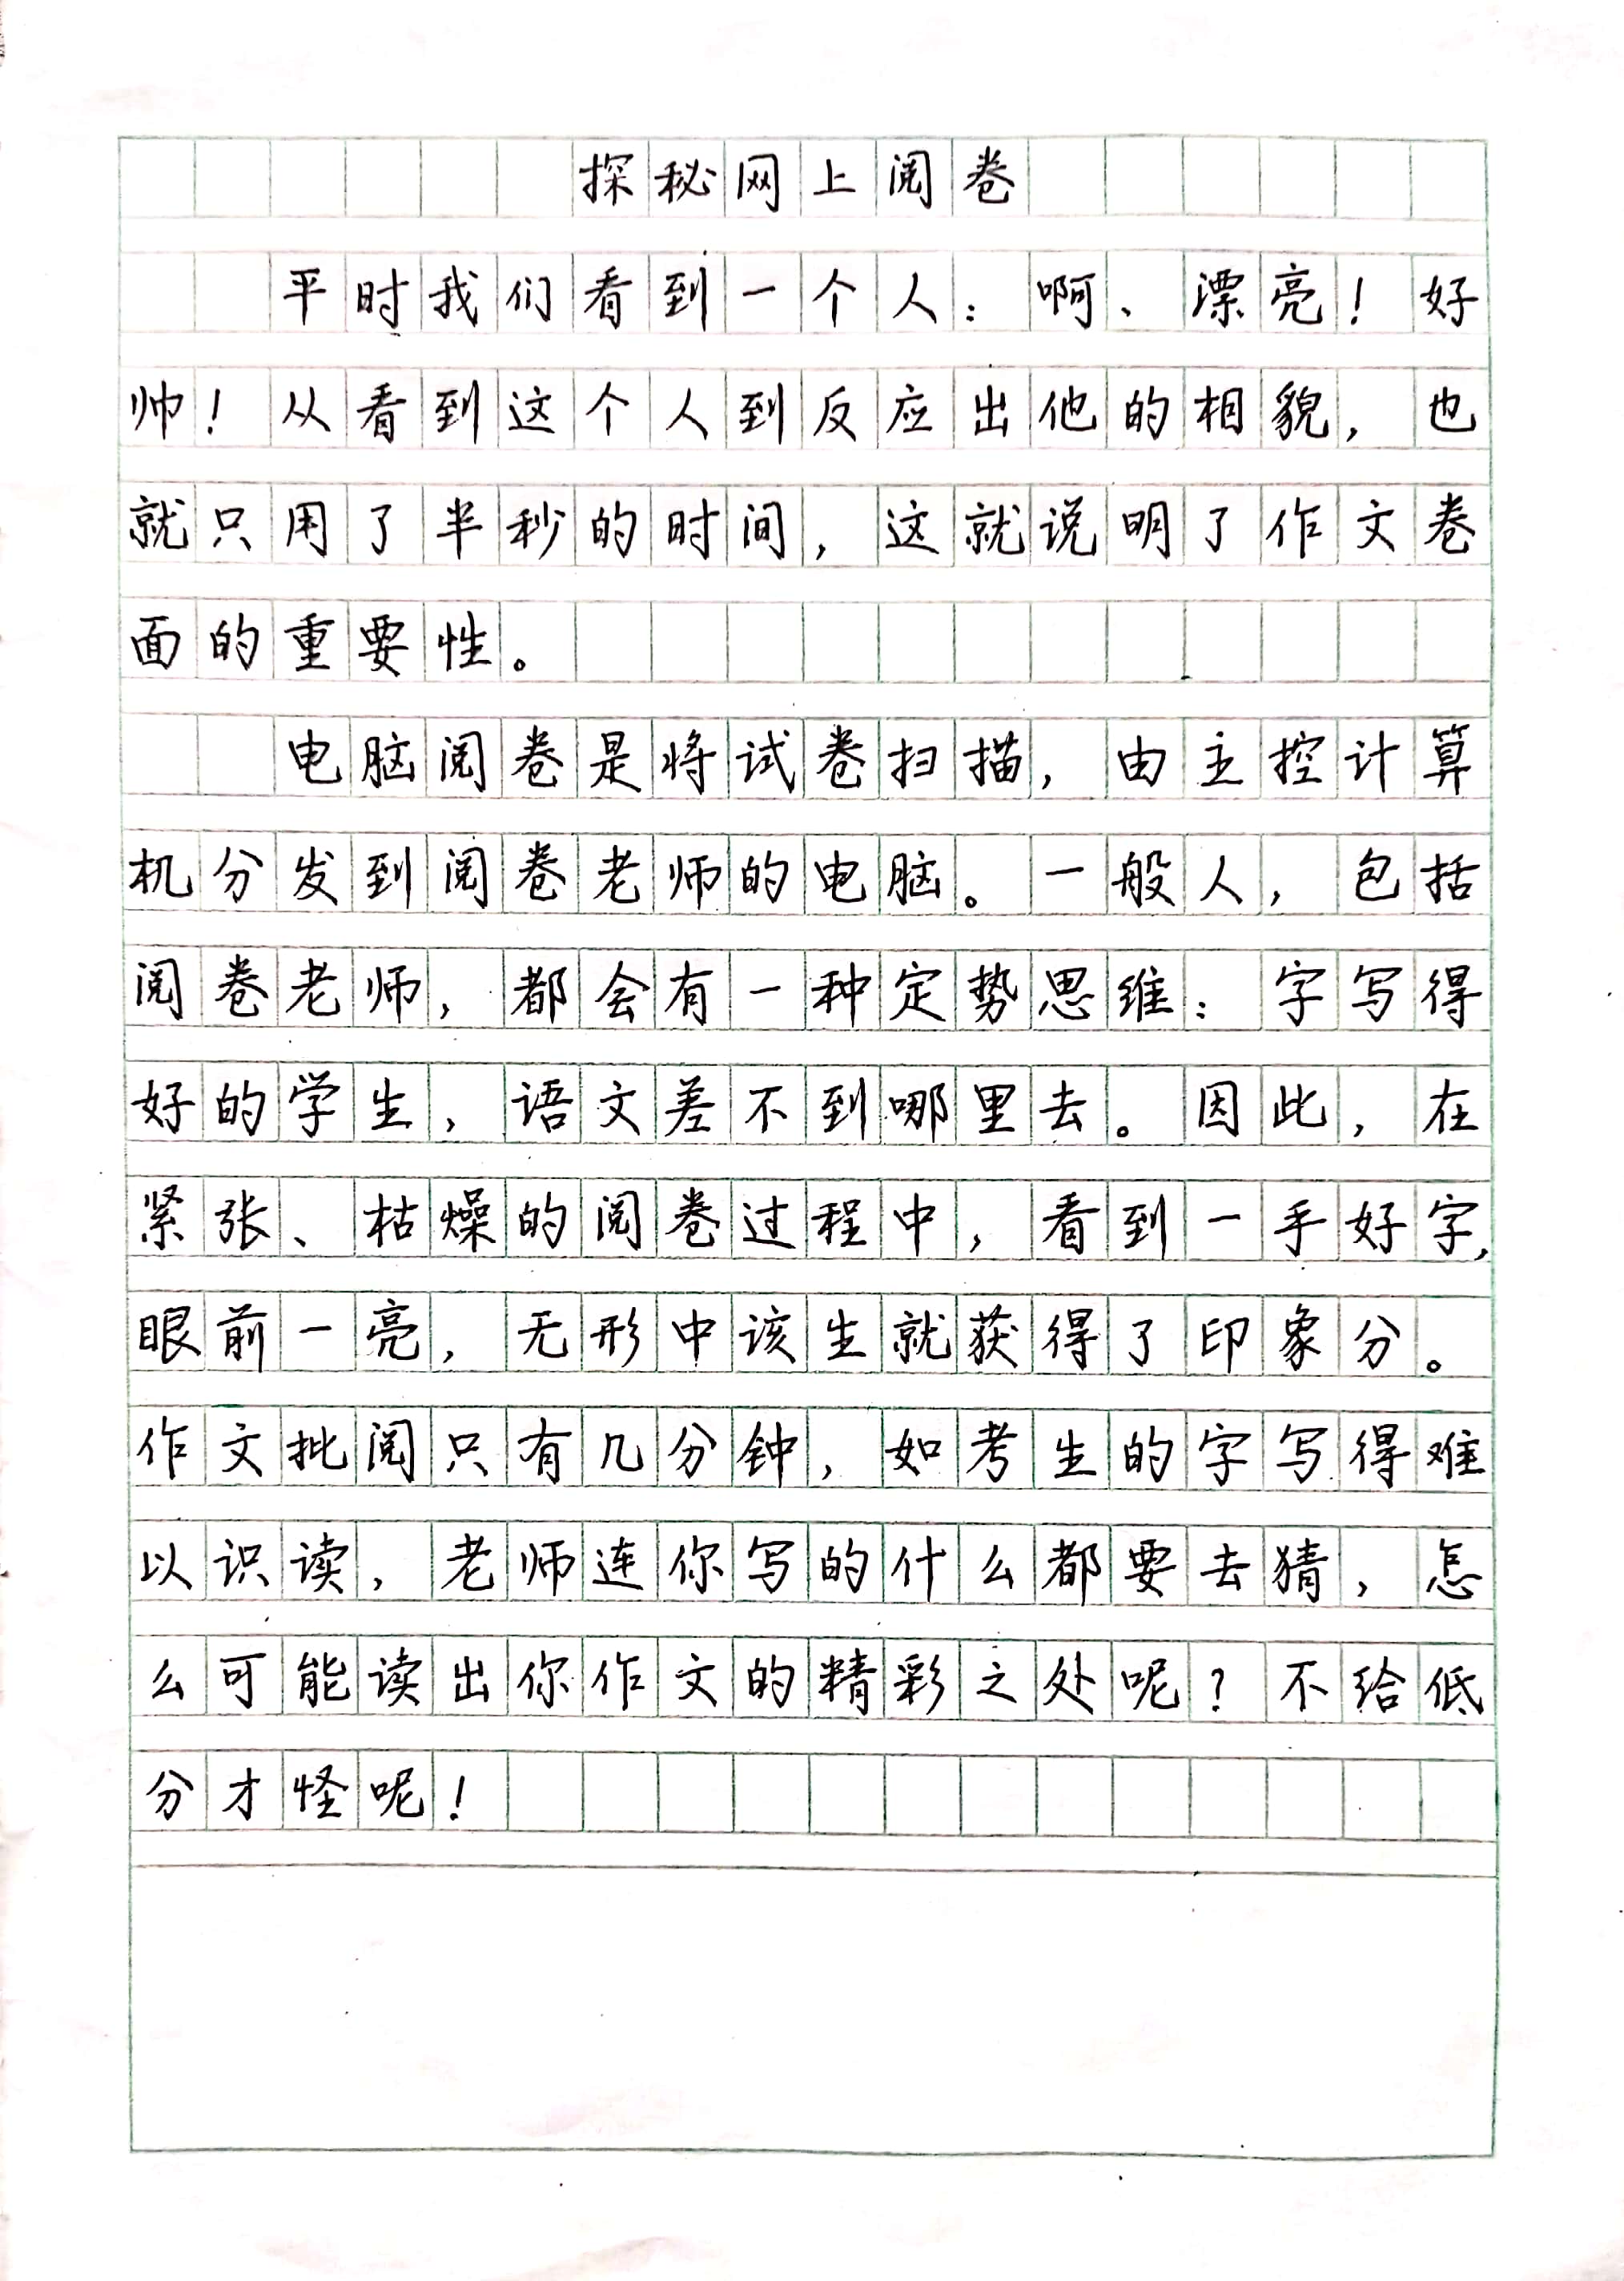 探秘网上阅卷
平时我们看到一个人：啊、漂亮！好
帅！从看到这个人到反应出他的相貌，也
就只用了半秒的时间，这就说明了作文卷
面的重要性。
电脑阅卷是将试卷扫描，由主控计算
机分发到阅卷老师的电脑。一般人，包括
阅卷老师，都会有一种定势思维：字写得
好的学生，语文差不到哪里去。因此，在
紧张、枯燥的阅卷过程中，看到一手好字，
眼前一亮，无形中该生就获得了印象分。
作文批阅只有几分钟，如考生的字写得难
以识读，老师连你写的什么都要去猜，怎
么可能读出你作文的精彩之处呢？不给低
分才怪呢！